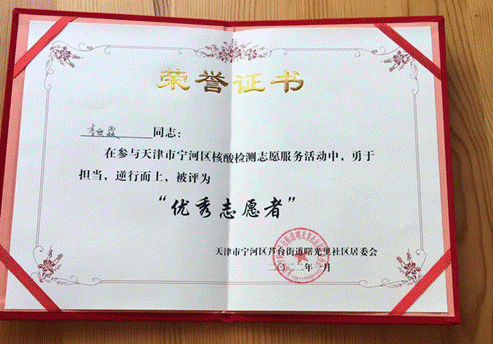 荣誉证书
同志：
在参与天津市宁河区核酸检测志愿服务活动中，勇于
担当，逆行而上，被评为
“优秀志愿者”
天津市宁河区芦台街道曙光里社区居委会
二〇二二年一月